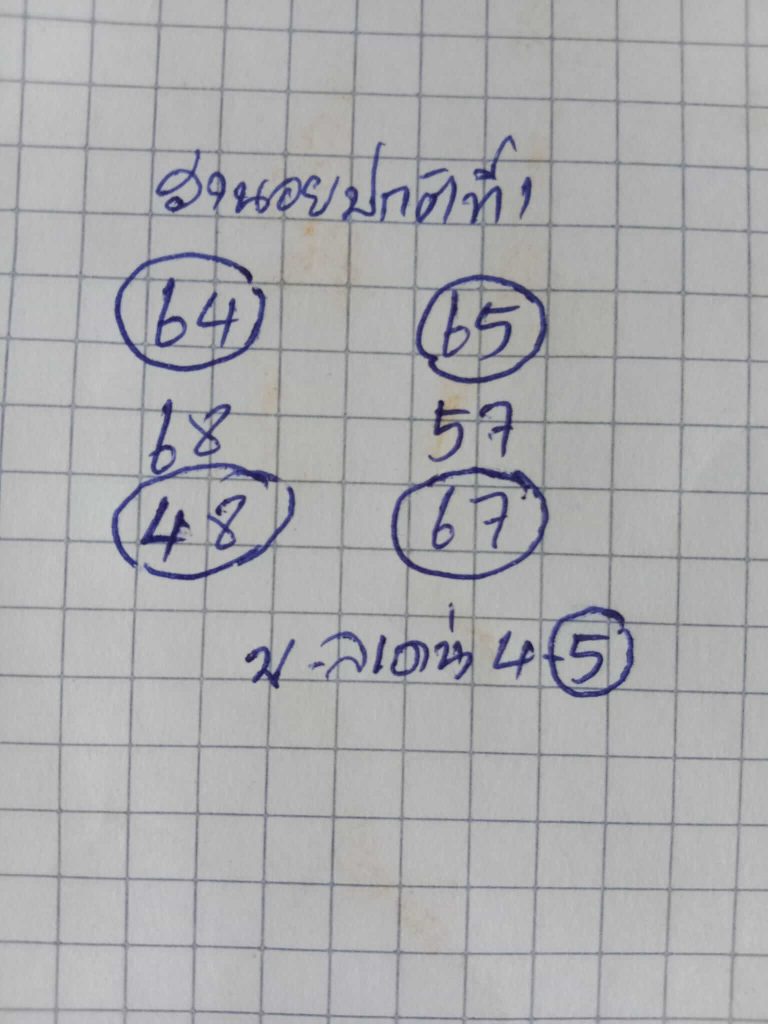 ฮานอยปกติที่1
64 65
68 57
48 67
บ-ลเด่น 4-5